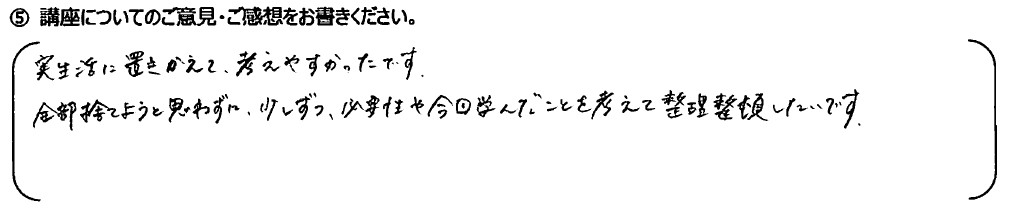 ⑤ 講座についてのご意見・ご感想をお書きください。
実生活に置きかえて、考えやすかったです。
全部捨てようと思わずに、少しずつ、必要性や今回学んだことを考えて整理整頓したいです。